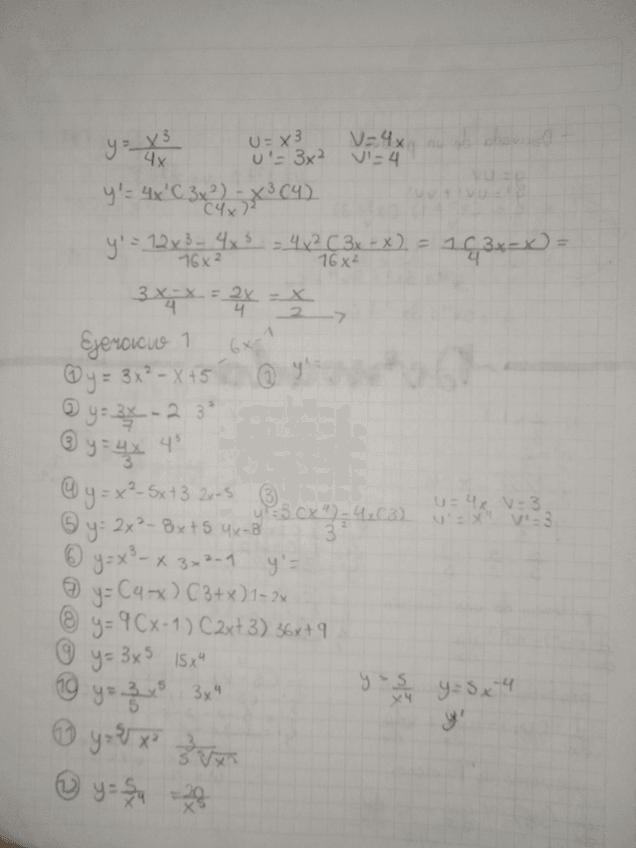 y = x³/4x    u = x³    V = 4x
u' = 3x²    V' = 4
y' = 4x'(3x²) - x³(4) / (4x)²
y' = 12x³ - 4x³ / 16x² = 4x²(3x - x) / 16x² = 1(3x - x) / 4 =
3x - x / 4 = 2x/4 = x/2
Ejercicio 1
① y = 3x² - x + 5    6x - 1    ① y' =
② y = 3x/7 - 2
③ y = 4x/3
④ y = x² - 5x + 3    2x - 5    ③
y' = 3(x⁴) - 4x(3) / 3²    u = 4x    V = 3
u' = x⁴    V' = 3
⑤ y = 2x² - 8x + 5    4x - 8
⑥ y = x³ - x    3x² - 1    y' =
⑦ y = (4 - x)(3 + x)    1 - 2x
⑧ y = 9(x - 1)(2x + 3)    36x + 9
⑨ y = 3x⁵    15x⁴
⑩ y = 3/5 x⁵    3x⁴    y = 5/x⁴    y = 5x⁻⁴
y'
⑪ y =
⑫ y = 5/x⁴    = 20/x⁵